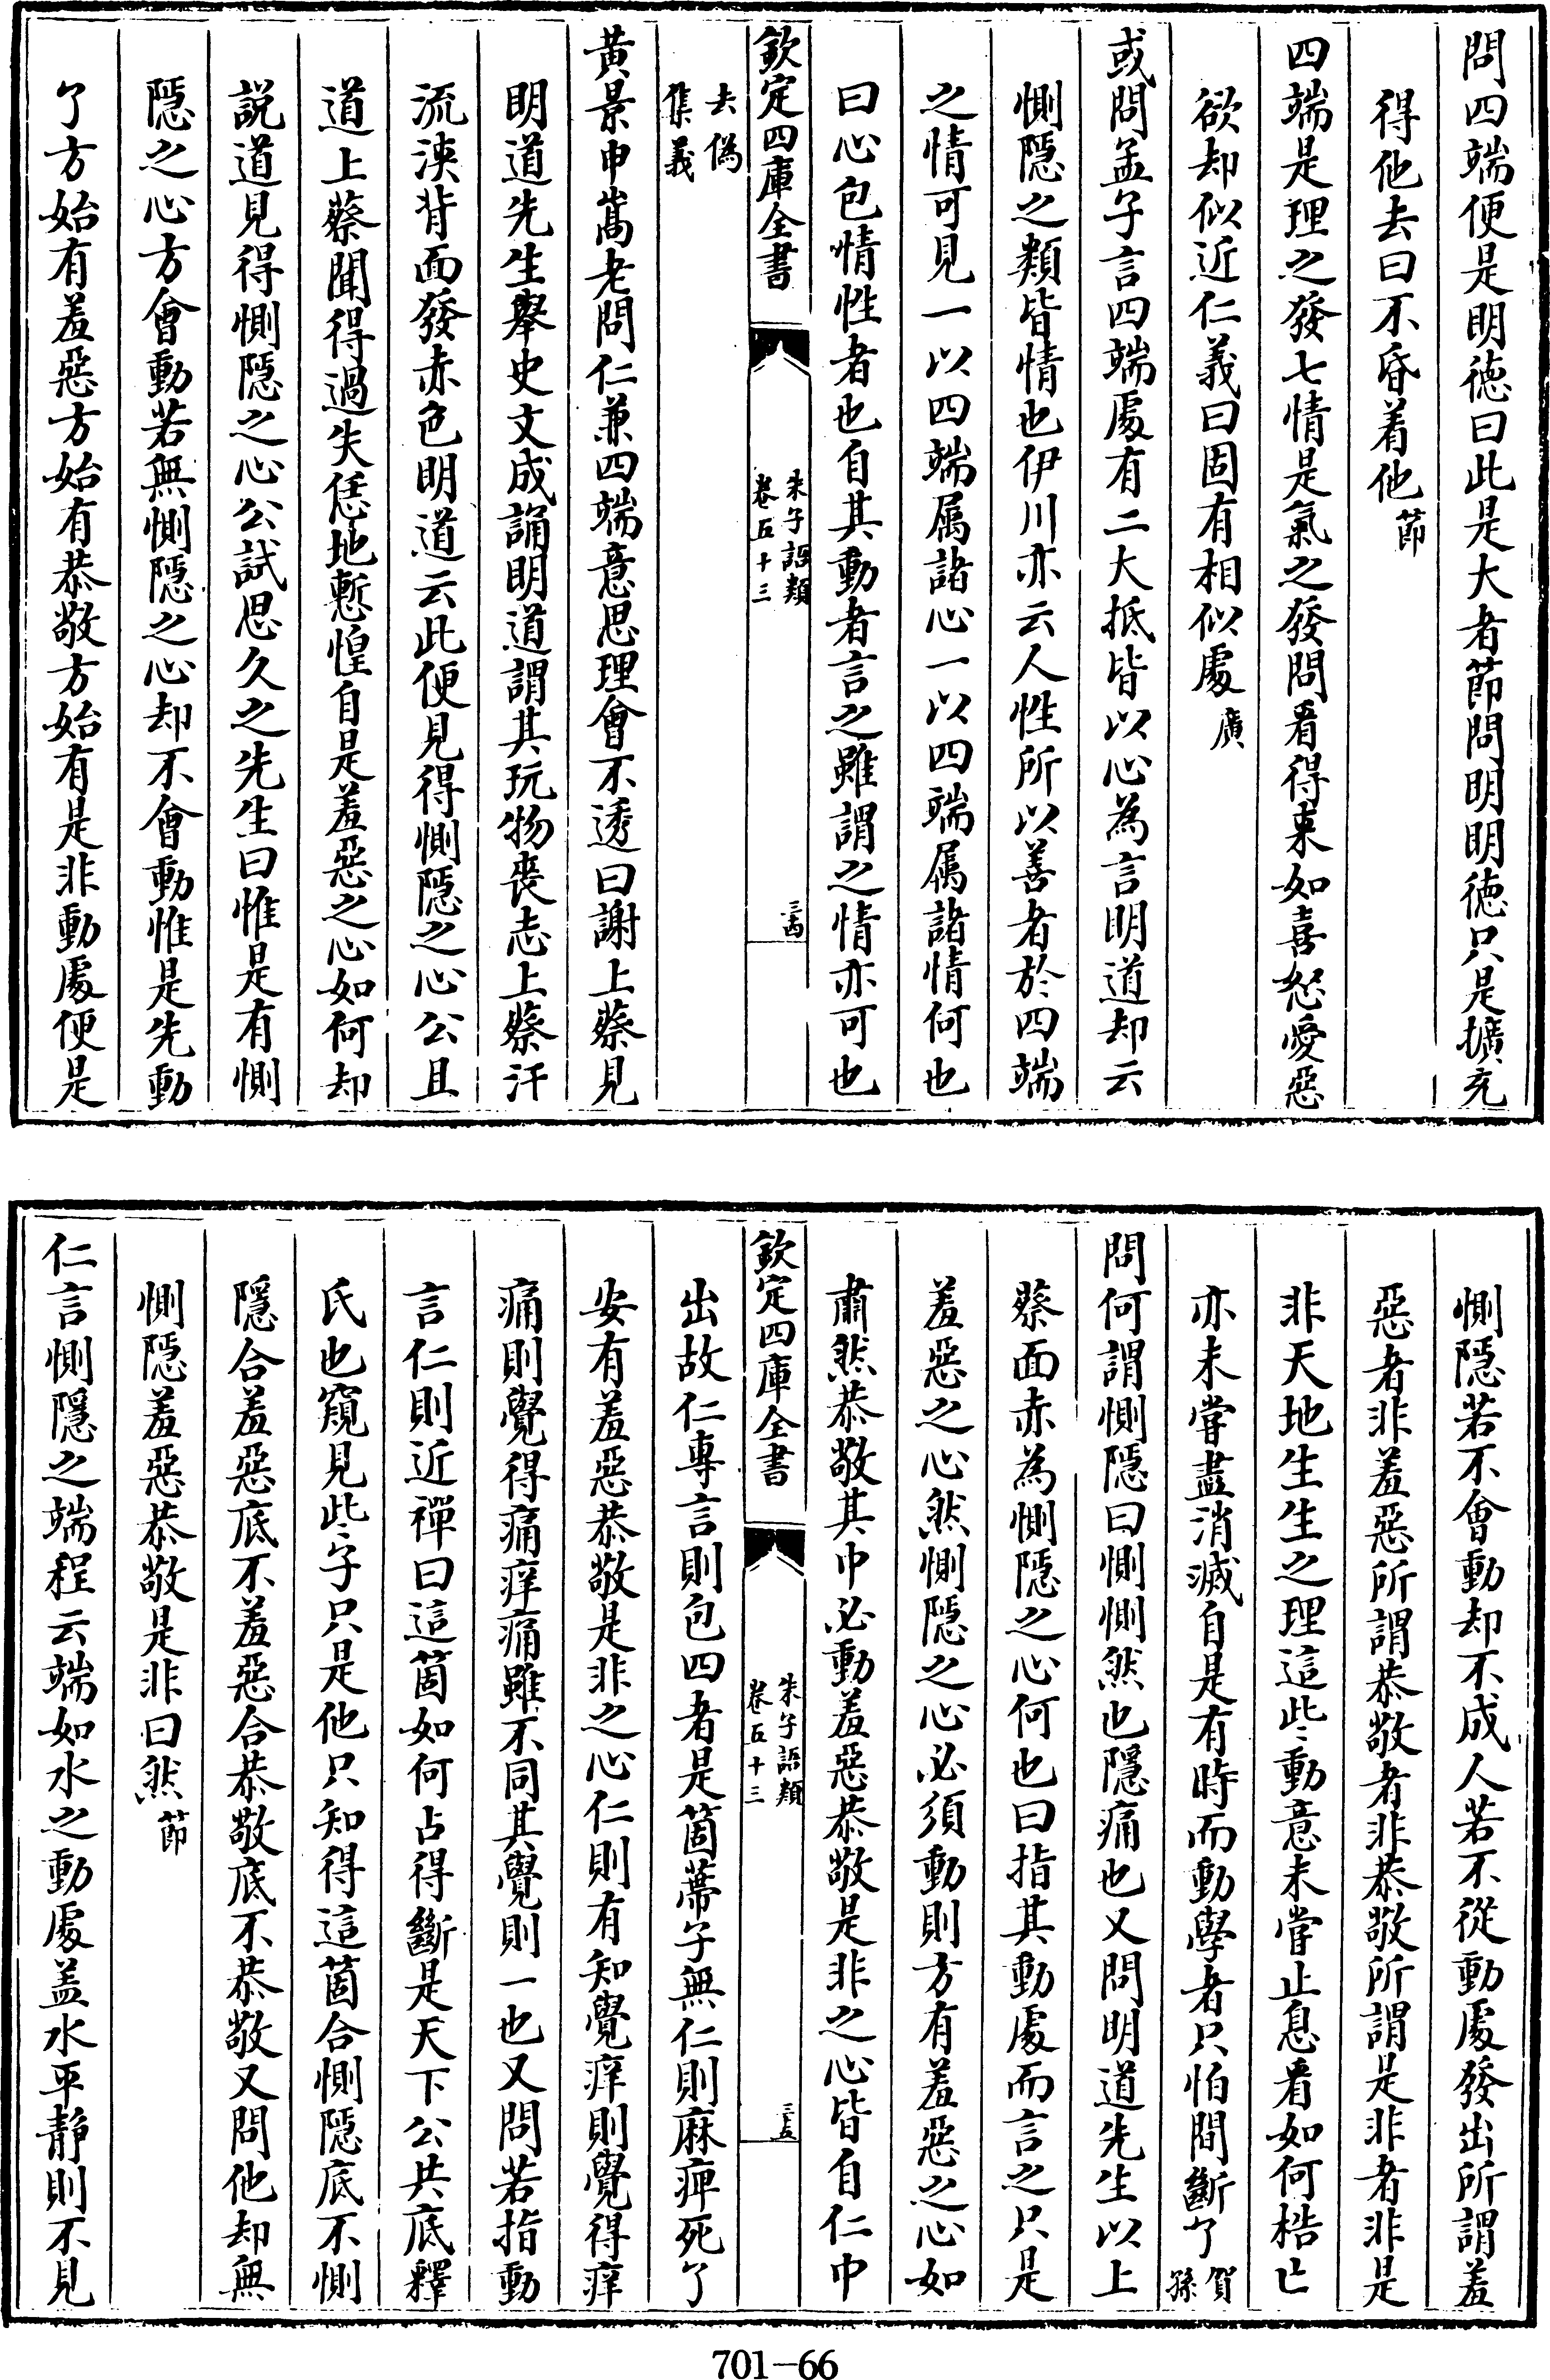 問四端便是明徳曰此是大者節問明明徳只是擴充
得他去曰不昏着他節
四端是理之發七情是氣之發問看得來如喜怒愛惡
欲却似近仁義曰固有相似處廣
或問孟子言四端處有二大抵皆以心為言明道却云
惻隠之類皆情也伊川亦云人性所以善者於四端
之情可見一以四端屬諸心一以四端屬諸情何也
曰心包情性者也自其動者言之雖謂之情亦可也
欽定四庫全書
朱子語類
卷五十三
三四
去偽
集義
黄景申嵩老問仁兼四端意思理會不透曰謝上蔡見
明道先生舉史文成誦明道謂其玩物喪志上蔡汗
流浹背面發赤色明道云此便見得惻隠之心公且
道上蔡聞得過失恁地慙惶自是羞惡之心如何却
説道見得惻隠之心公試思久之先生曰惟是有惻
隠之心方會動若無惻隠之心却不會動惟是先動
了方始有羞惡方始有恭敬方始有是非動處便是
惻隠若不會動却不成人若不從動處發出所謂羞
惡者非羞惡所謂恭敬者非恭敬所謂是非者非是
非天地生生之理這些動意未嘗止息看如何梏亡
亦未嘗盡消滅自是有時而動學者只怕間斷了賀孫
問何謂惻隠曰惻惻然也隠痛也又問明道先生以上
蔡面赤為惻隠之心何也曰指其動處而言之只是
羞惡之心然惻隠之心必須動則方有羞惡之心如
肅然恭敬其中必動羞惡恭敬是非之心皆自仁中
欽定四庫全書
朱子語類
卷五十三
三五
出故仁專言則包四者是箇蔕子無仁則麻痺死了
安有羞惡恭敬是非之心仁則有知覺痒則覺得痒
痛則覺得痛痒痛雖不同其覺則一也又問若指動
言仁則近禪曰這箇如何占得斷是天下公共底釋
氏也窺見些子只是他只知得這箇合惻隠底不惻
隠合羞惡底不羞惡合恭敬底不恭敬又問他却無
惻隠羞惡恭敬是非曰然節
仁言惻隠之端程云端如水之動處盖水平静則不見
701-66